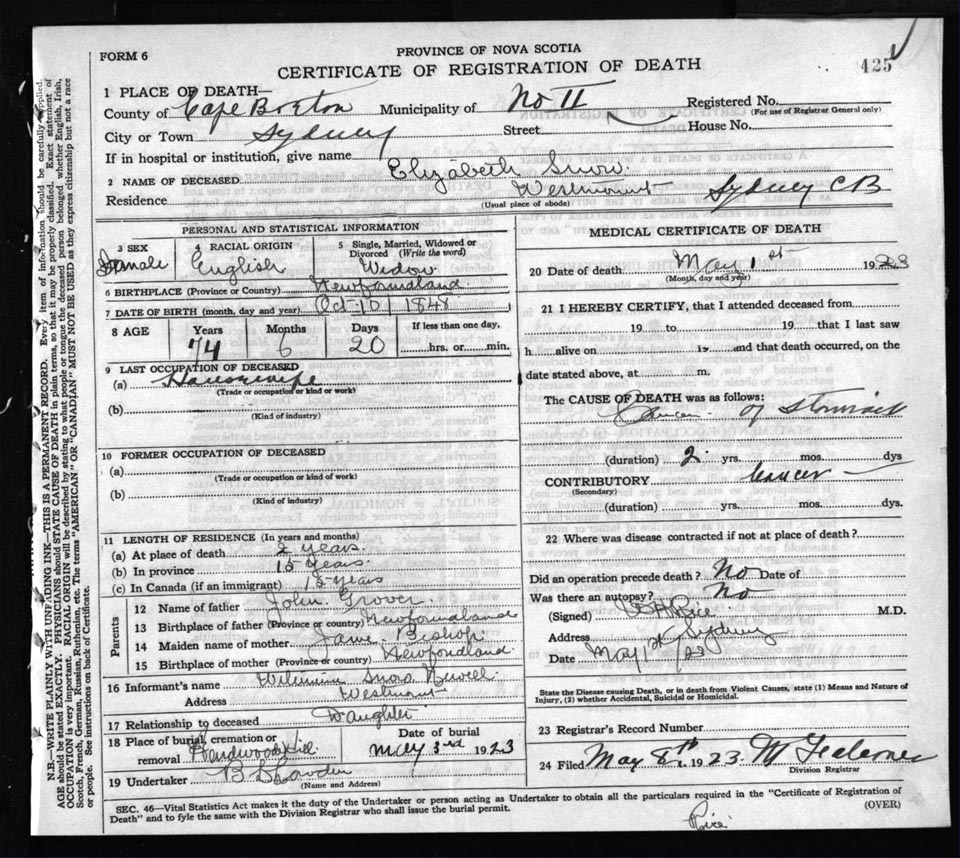 PROVINCE OF NOVA SCOTIA
FORM 6
CERTIFICATE OF REGISTRATION OF DEATH
425
1 PLACE OF DEATH—
County of Cape Breton Municipality of No 11 Registered No.
(For use of Registrar General only)
City or Town Sydney Street House No.
If in hospital or institution, give name
2 NAME OF DECEASED Elizabeth Snow
Residence Westmount Sydney CB
(Usual place of abode)
PERSONAL AND STATISTICAL INFORMATION
3 SEX
Female
4 RACIAL ORIGIN
English
5 Single, Married, Widowed or
Divorced (Write the word)
Widow
6 BIRTHPLACE (Province or Country) Newfoundland
7 DATE OF BIRTH (month, day and year) Oct 10 1848
8 AGE Years Months Days If less than one day,
74 6 20 hrs. or min.
9 LAST OCCUPATION OF DECEASED
(a) Housewife
(Trade or occupation or kind or work)
(b)
(Kind of industry)
10 FORMER OCCUPATION OF DECEASED
(a)
(Trade or occupation or kind of work)
(b)
(Kind of industry)
11 LENGTH OF RESIDENCE (In years and months)
(a) At place of death 2 years.
(b) In province 15 years.
(c) In Canada (if an immigrant) 15 years
Parents
12 Name of father John Grover.
13 Birthplace of father (Province or country) Newfoundland
14 Maiden name of mother Jane Bishop
15 Birthplace of mother (Province or country) Newfondland.
16 Informant's name Snow
Address Westmount
17 Relationship to deceased Daughter
18 Place of burial, cremation or
removal Hardwood Hill
Date of burial
May 3rd 1923
19 Undertaker
(Name and Address)
MEDICAL CERTIFICATE OF DEATH
20 Date of death May 1st 1923
(Month, day and year)
21 I HEREBY CERTIFY, that I attended deceased from
19 to 19 that I last saw
h alive on 19 and that death occurred, on the
date stated above, at m.
The CAUSE OF DEATH was as follows:
Cancer of Stomach
(duration) 2 yrs. mos. dys
CONTRIBUTORY Cancer
(Secondary)
(duration) yrs. mos. dys.
22 Where was disease contracted if not at place of death?
Did an operation precede death? No Date of
Was there an autopsy? No
(Signed) Rice M.D.
Address Sydney
Date May 1st 23
State the Disease causing Death, or in death from Violent Causes, state (1) Means and Nature of
Injury, (2) whether Accidental, Suicidal or Homicidal.
23 Registrar's Record Number
24 Filed May 8th 1923
Division Registrar
SEC. 46—Vital Statistics Act makes it the duty of the Undertaker or person acting as Undertaker to obtain all the particulars required in the "Certificate of Registration of
Death" and to fyle the same with the Division Registrar who shall issue the burial permit.
(OVER)
Rice
N.B.—WRITE PLAINLY WITH UNFADING INK—THIS IS A PERMANENT RECORD. Every item of information should be carefully supplied.
AGE should be stated EXACTLY. PHYSICIANS should STATE CAUSE OF DEATH in plain terms, so that it may be properly classified. Exact statement of
OCCUPATION is very important. RACIAL ORIGIN will be described by stating to what people or tongue the deceased person belonged whether English, Irish,
Scotch, French, German, Russian, Ruthenian, etc. The terms "AMERICAN" OR "CANADIAN" MUST NOT BE USED as they express citizenship but not a race
or people. See instructions on back of Certificate.